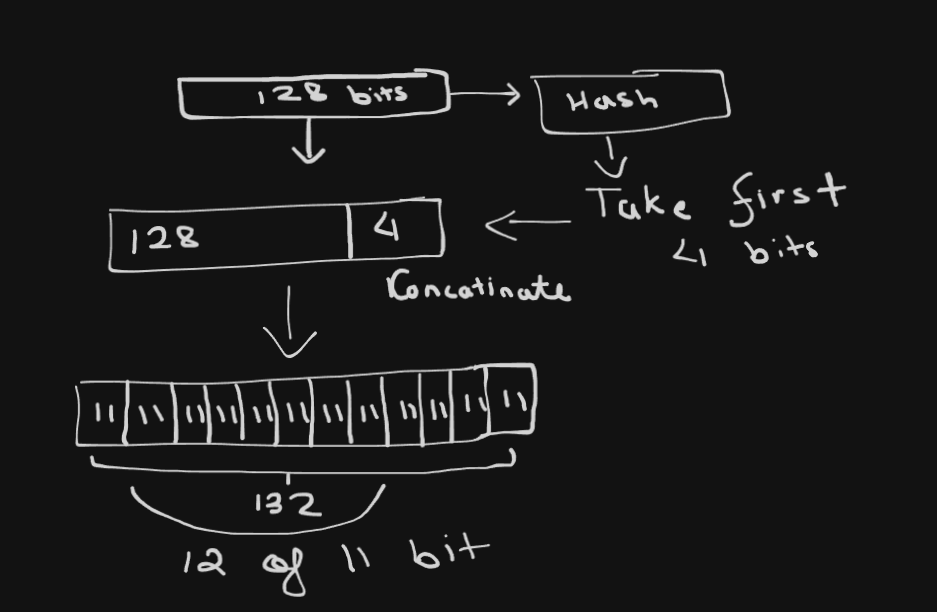 128 bits
Hash
Take first
4 bits
128
4
Concatinate
11 11 11 11 11 11 11 11 11 11 11 11
132
12 of 11 bit